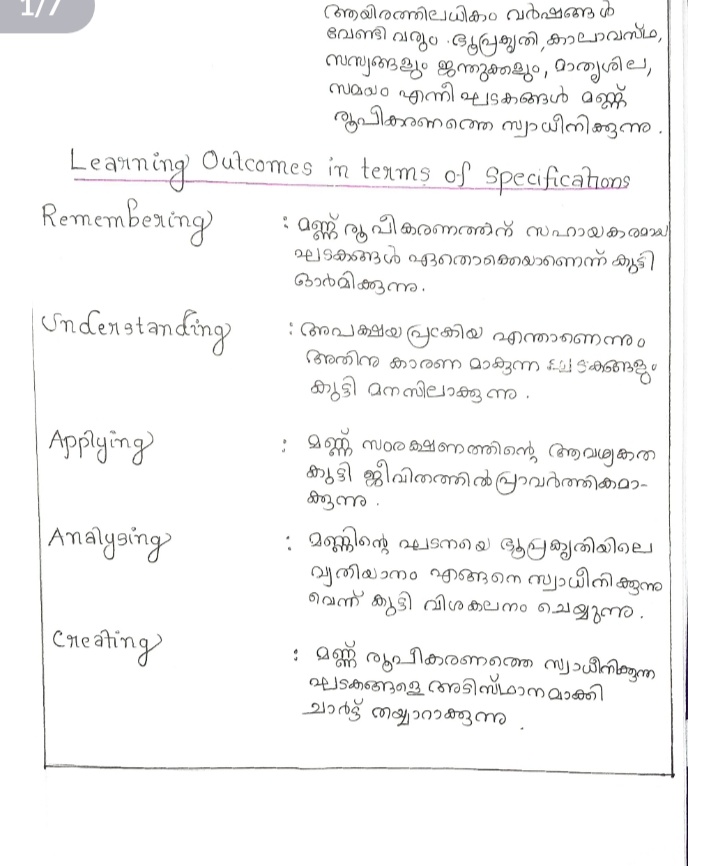 1/7
ആയിരത്തിലധികം വർഷങ്ങൾ
വേണ്ടി വരും. ഭൂപ്രകൃതി, കാലാവസ്ഥ,
സസ്യങ്ങളും ജന്തുക്കളും, മാതൃശില,
സമയം എന്നീ ഘടകങ്ങൾ മണ്ണ്
രൂപീകരണത്തെ സ്വാധീനിക്കുന്നു.
Learning Outcomes in terms of Specifications
Remembering : മണ്ണ് രൂപീകരണത്തിന് സഹായകരമായ
ഘടകങ്ങൾ ഏതൊക്കെയാണെന്ന് കുട്ടി
ഓർമിക്കുന്നു.
Understanding : അപക്ഷയ പ്രക്രിയ എന്താണെന്നും
അതിനു കാരണ മാകുന്ന ഘടകങ്ങളും
കുട്ടി മനസിലാക്കുന്നു.
Applying : മണ്ണ് സംരക്ഷണത്തിന്റെ ആവശ്യകത
കുട്ടി ജീവിതത്തിൽ പ്രാവർത്തികമാ-
ക്കുന്നു.
Analysing : മണ്ണിന്റെ ഘടനയെ ഭൂപ്രകൃതിയിലെ
വ്യതിയാനം എങ്ങനെ സ്വാധീനിക്കുന്നു
വെന്ന് കുട്ടി വിശകലനം ചെയ്യുന്നു.
Creating : മണ്ണ് രൂപീകരണത്തെ സ്വാധീനിക്കുന്ന
ഘടകങ്ങളെ അടിസ്ഥാനമാക്കി
ചാർട്ട് തയ്യാറാക്കുന്നു.